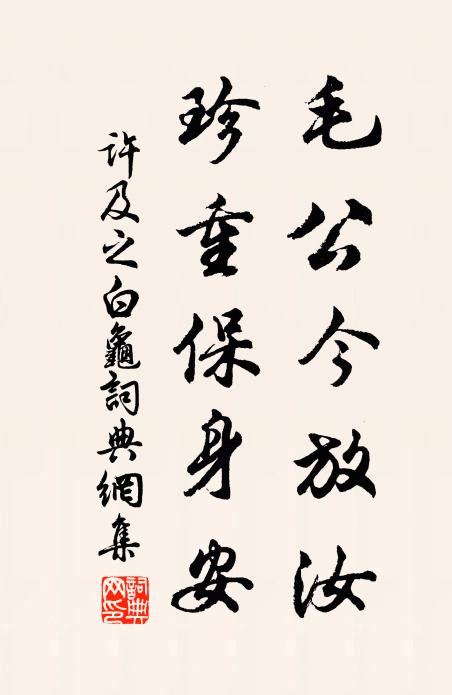 毛公今放汝
珍重保身安
许及之白龜詞典網集
詞典網印